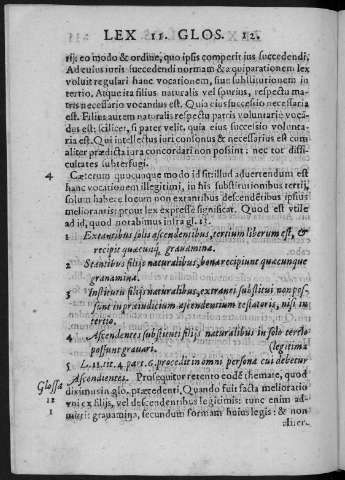 LEX 11. GLOS. 12.
rij: eo modo & ordine, quo ipsis comperit ius succedendi.
Ad cuius iuris succedendi normam & æquiparationem lex
voluit regulari hanc vocationem, siue substitutionem in
tertio. Atque ita filius naturalis vel spurius, respectu ma
tris necessario vocandus est. Quia eius successio necessaria
est. Filius autem naturalis respectu patris voluntarie voca
dus est: scilicet, si pater velit, quia eius successio volunta-
ria est. Qui intellectus iuri consonus & necessarius est com
aliter prædicta iura concordari non possint: nec tot diffi
cultates subterfugi.
4 Cæterum quocunque modo id sit illud aduertendum est
hanc vocationem illegitimi, in his substitutionibus tertij,
solum habere locum non extantibus descendētibus ipsius
meliorantis: prout lex expresse significat. Quod est vtile
ad id, quod notabimus infra gl. 13.
1 Extantibus solis ascendentibus, tertium liberum est, &
recipit quæcunq; grauamina.
2 Stantibus filijs naturalibus, bona recipiunt quæcunque
grauamina.
3 Institutis filijs naturalibus, extranei substitui non pos-
sunt in præiudicium ascendentium testatoris, nisi in
tertio.
4 Ascendentes substituti filijs naturalibus in solo tertio
possunt grauari. (legitima
5 L. 11. tit. 4. part. 6. procedit in omni persona cui debetur
Glossa Ascendientes. Prosequitur retento eodē themate, quod
12 diximus in glo. præcedenti. Quando fuit facta melioratio
1 vni ex filijs, vel descendentibus legitimis: tunc enim ad-
mittit grauamina, secundum formam huius legis: & non
aliter.